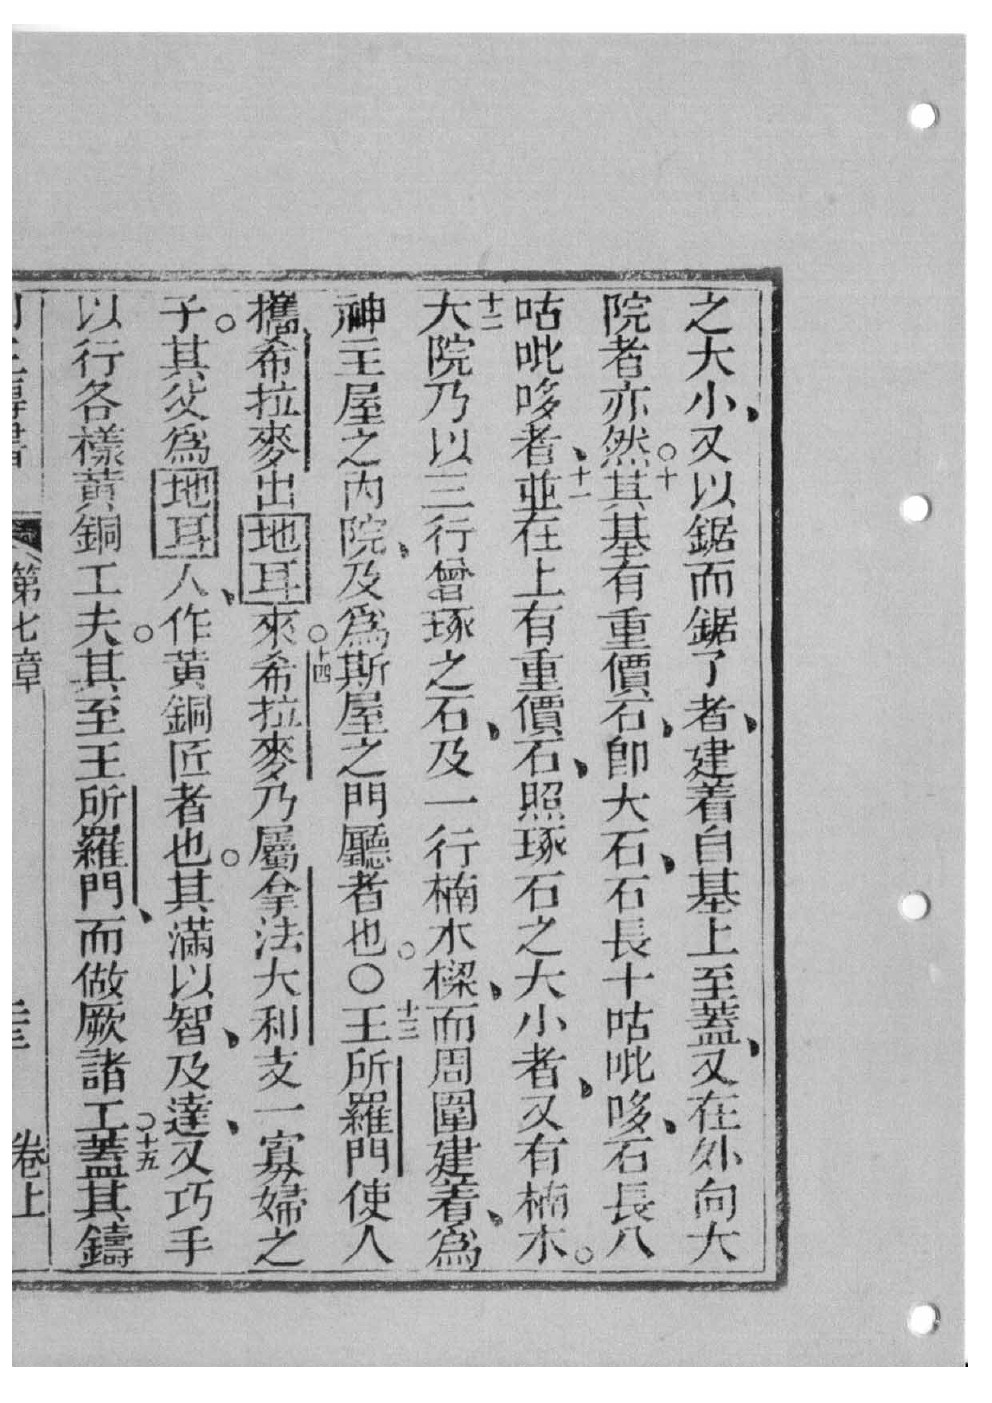 之大小、又以鋸而鋸了者、建着自基上至蓋、又在外向大
院者亦然。十其基有重價石、卽大石、石長十咕吡哆、石長八
咕吡哆者、十一並在上有重價石、照琢石之大小者、又有楠木。
十二大院乃以三行曾琢之石、及一行楠木樑、而周圍建着、為
神主屋之內院、及為斯屋之門廳者也。○十三王所羅門使人
攜希拉麥出地耳來。十四希拉麥乃屬拿法大利支一寡婦之
子。其父為地耳人、作黃銅匠者也。其滿以智、及達、又巧手
以行各樣黃銅工夫。其至王所羅門、而做厥諸工。十五蓋其鑄
第七章 卷上